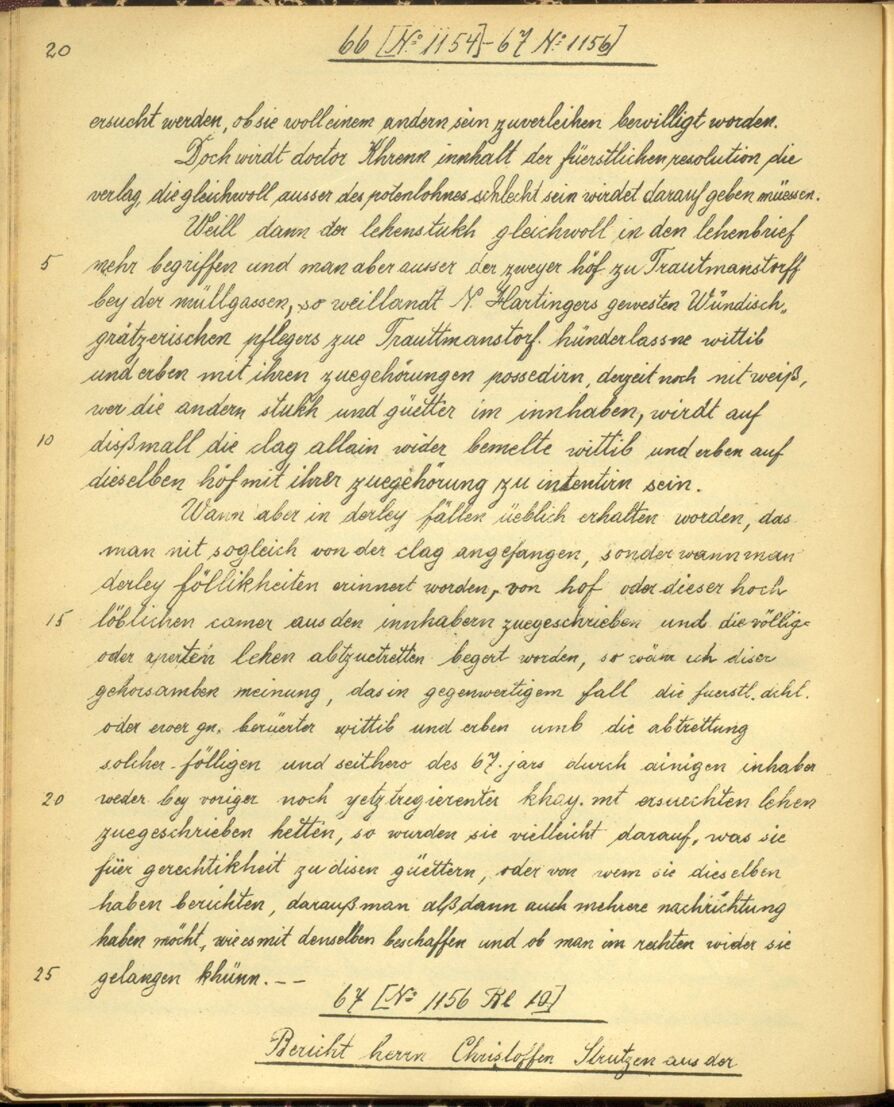 20
66 [No 1154]-67 No 1156]
ersucht werden, ob sie woll einem andern sein zuverleihen bewilligt worden.
Doch wirdt doctor Khrenn innhalt der füerstlichen resolution die
verlag, die gleichwoll ausser des potenlohnes schlecht sein wirdet darauf geben müessen.
Weill dann der lehenstukh gleichwoll in den lehenbrief
5 mehr begriffen und man aber ausser der zweyer höf zu Trautmanstorff
bey der müllgassen, so weillandt N. Hartingers gewesten Wündisch„
grätzerischen pflegers zue Trauttmanstorf. hünderlassne wittib
und erben mit ihren zuegehörungen possedirn, derzeit noch nit weiß,
wer die andern stukh und güetter im innhaben, wirdt auf
10 dißmall die clag allain wider bemelte wittib und erben auf
dieselben höf mit ihrer zuegehörung zu intentirn sein.
Wann aber in derley fällen üeblich erhalten worden, das
man nit sogleich von der clag angefangen, sonder wann man
derley föllikheiten erinnert worden, von hof oder dieser hoch
15 löblichen camer aus den innhabern zuegeschrieben und die völlig=
oder aperten lehen abtzuetretten begert worden, so wäm ich diser
gehorsamben meinung, das in gegenwertigem fall die fuerstl. dchl.
oder ewer gn. berüerter wittib und erben umb die abtrettung
solcher fölligen und seithero des 67. jars durch ainigen inhaber
20 weder bey voriger noch yetztregierenter khay. mt ersuechten lehen
zuegeschrieben hetten, so wurden sie vielleicht darauf, was sie
für gerechtikheit zu disen güettern, oder von wem sie dieselben
haben berichten, darauß man alßdann auch mehrere nachrichtung
haben möcht, wie es mit denselben beschaffen und ob man im rechten wider sie
25 gelangen khünn. --
67 [No 1156 Bl 10]
Bericht herrn Christoffen Strutzen aus der